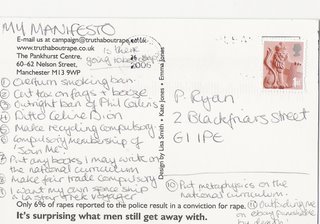 MY MANIFESTO
E-mail us at campaign@truthaboutrape.co.uk
www.truthaboutrape.co.uk
The Pankhurst Centre,
60-62 Nelson Street,
Manchester M13 9WP
is there
going
2006
① Overturn smoking ban
② Cut tax on fags + booze
③ Outright ban of Phil Collins
④ Ditto Celine Dion
⑤ Make recycling compulsory
⑥ Compulsory membership of
"Join Me"
⑦ Put any books I may write on
the national curriculum
⑧ Make fair trade compulsory
⑨ I want my own space ship
a la Star Trek Voyager
Only 6% of rapes reported to the police result in a conviction for rape.
It's surprising what men still get away with.
Design by Lisa Smith • Kate Jones • Emma Jones
P. Ryan
2 Blackfriars Street
G1 1PE
⑩ Put metaphysics on the
national curriculum
⑪ Outbidding me
on ebay punishable
by death